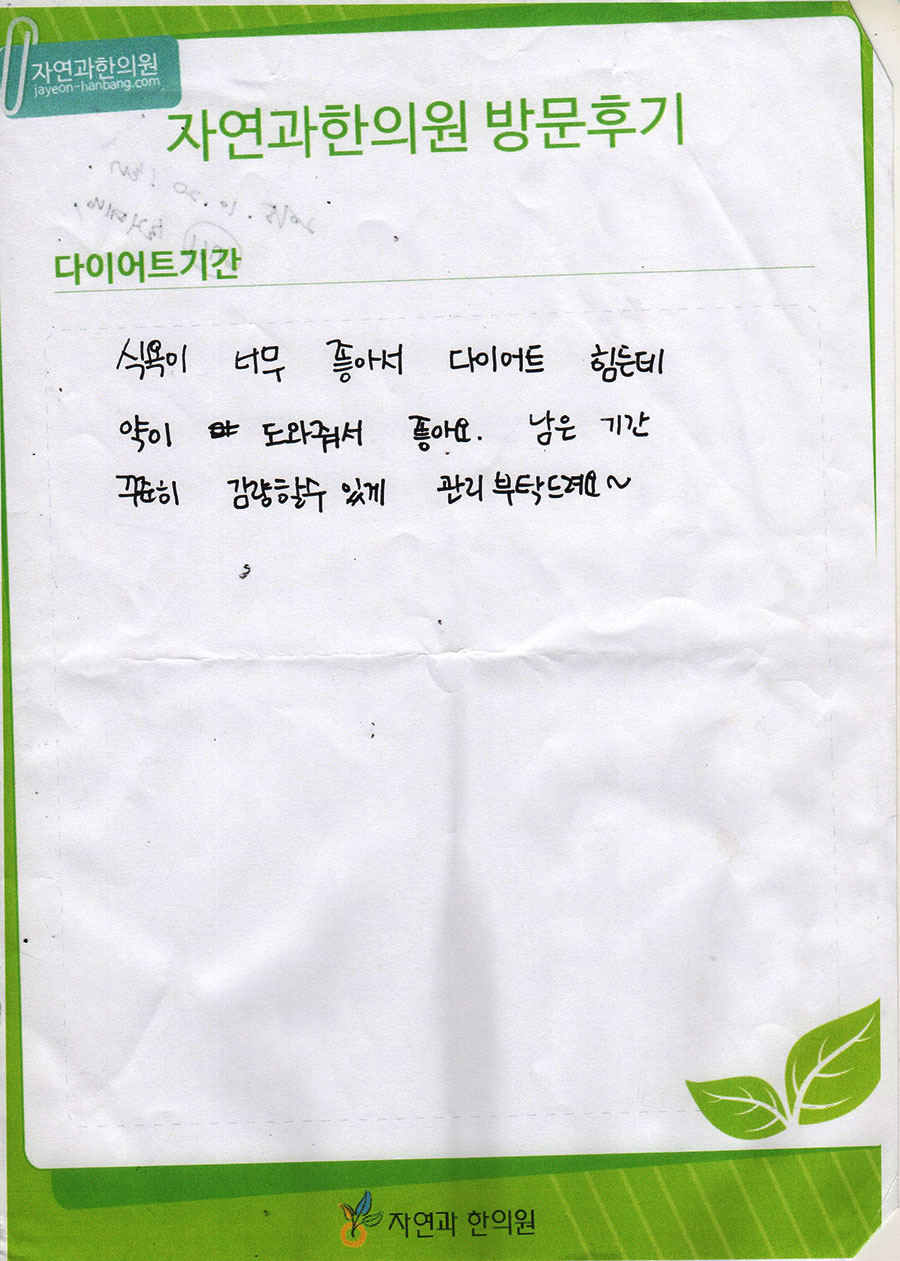 자연과한의원
jayeon-hanbang.com
자연과한의원 방문후기
다이어트기간
식욕이 너무 좋아서 다이어트 힘든데
약이 도와줘서 좋아요. 남은 기간
꾸준히 감량할수 있게 관리 부탁드려요~
자연과 한의원